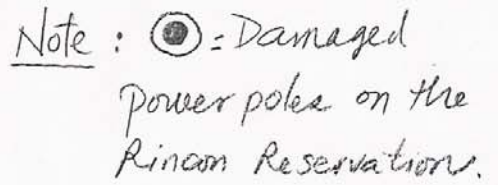 Note : ◉ = Damaged
power poles on the
Rincon Reservation.